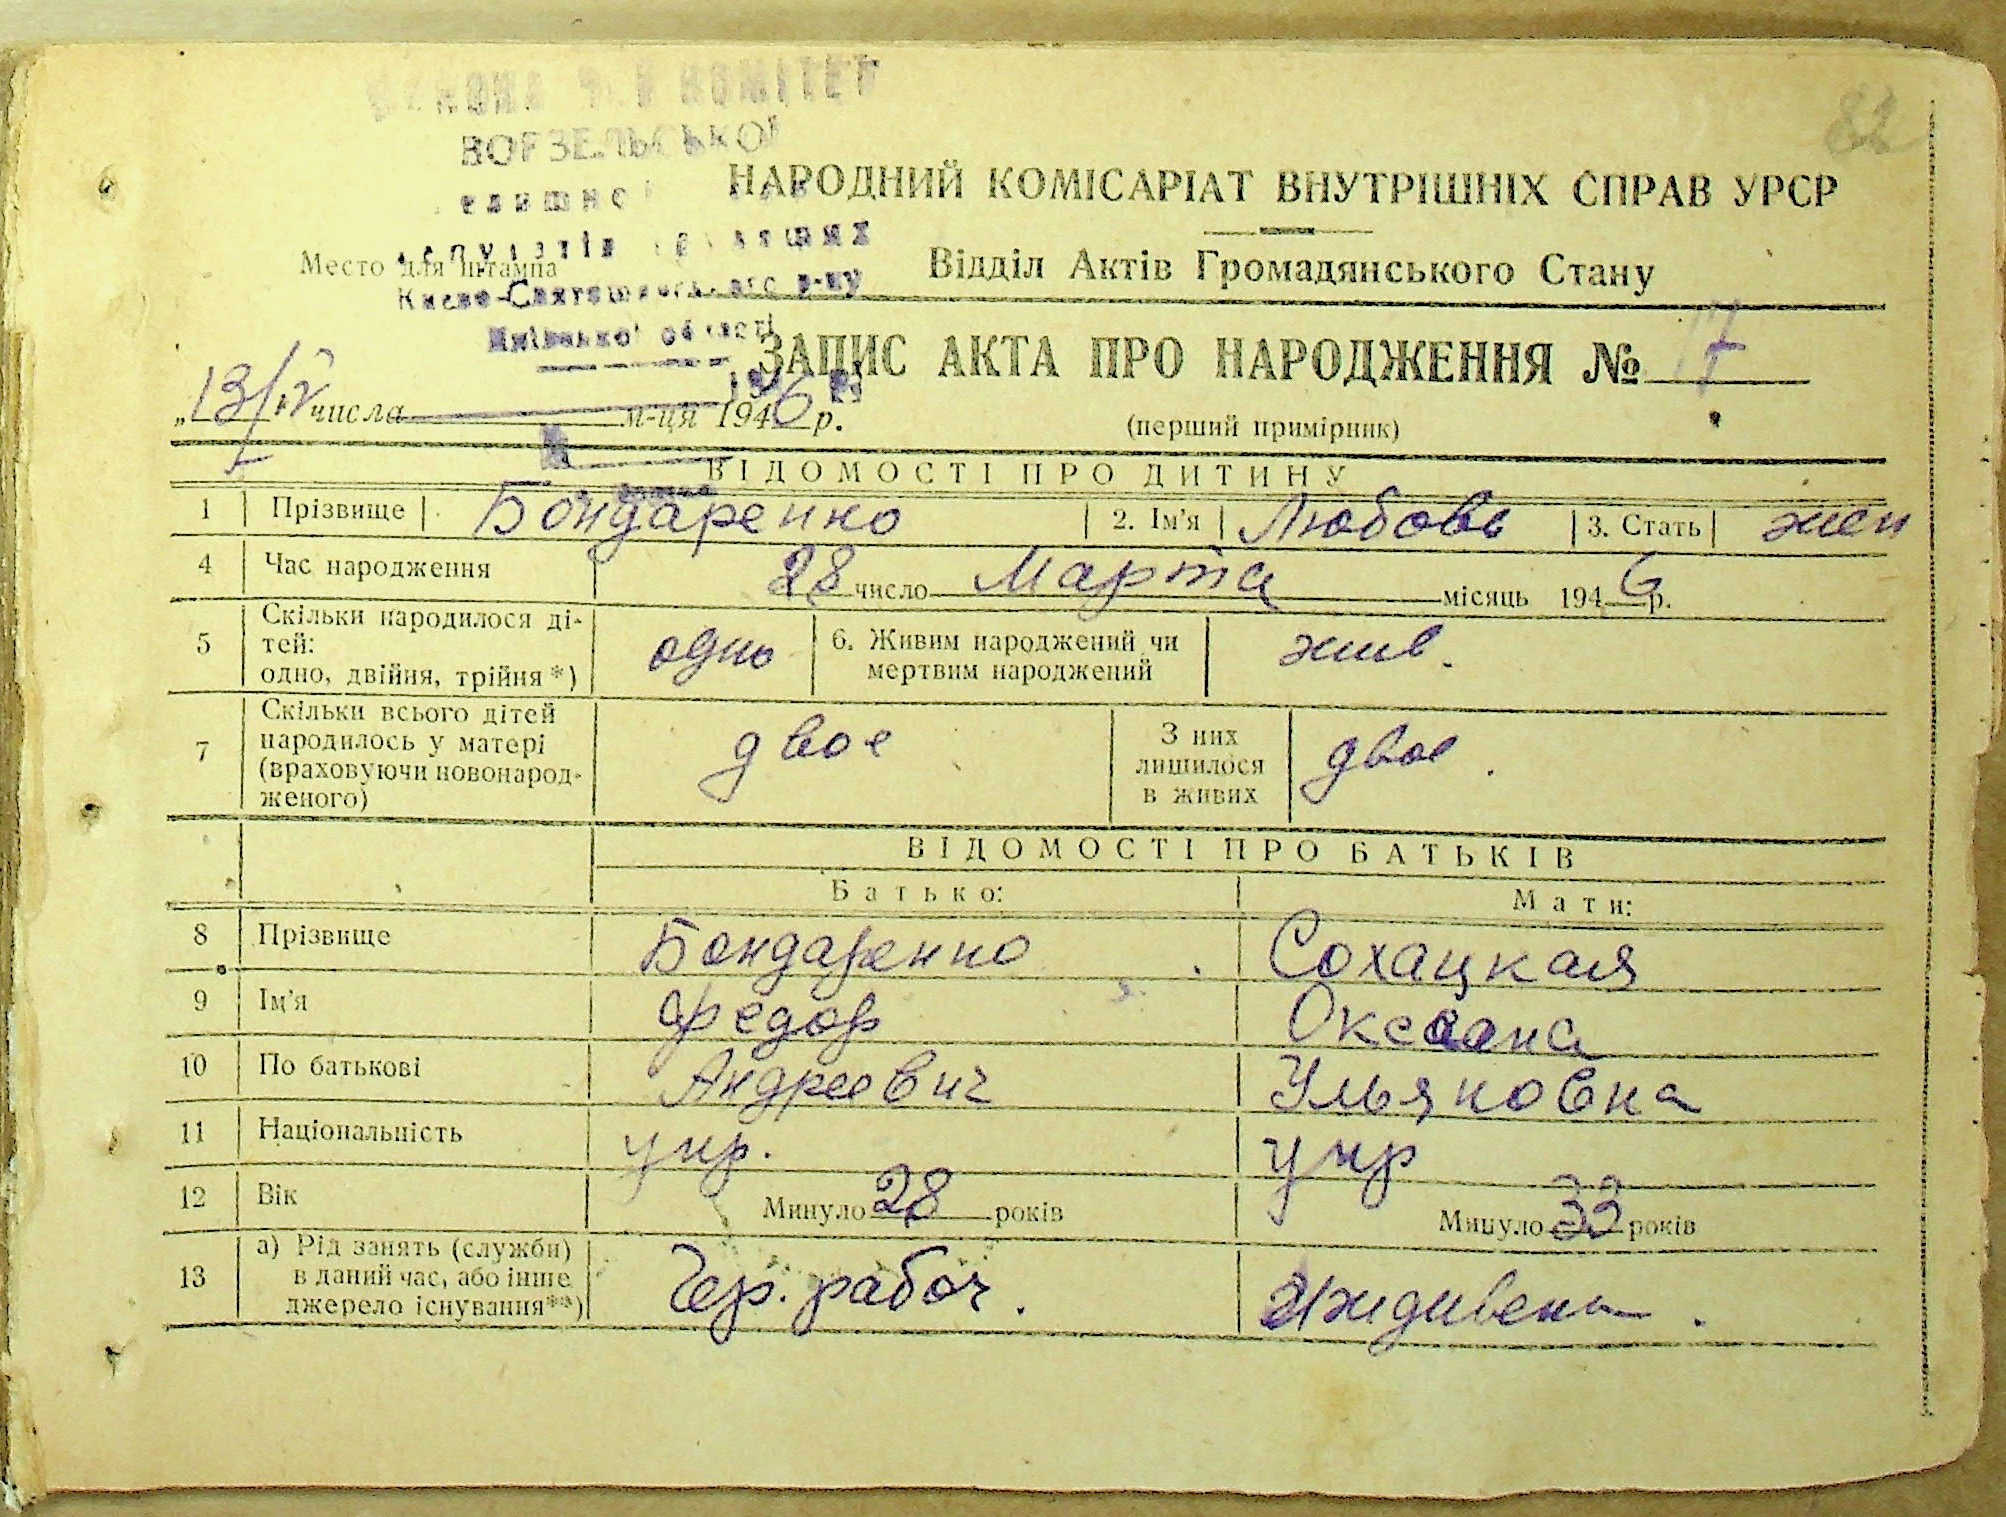 82
КОМІТЕТ
ВОРЗЕЛЬСЬКОЇ
НАРОДНИЙ КОМІСАРІАТ ВНУТРІШНІХ СПРАВ УРСР
Место для штампа
Відділ Актів Громадянського Стану
Києво-Святошинського р-ну
Київської області
ЗАПИС АКТА ПРО НАРОДЖЕННЯ № 17
„13/IV" числа м-ця 1946 р.
(перший примірник)
ВІДОМОСТІ ПРО ДИТИНУ
1 Прізвище Бондаренко 2. Ім'я Любовь 3. Стать жен
4 Час народження 28 число Марта місяць 1946 р.
5 Скільки народилося ді-
тей:
одно, двійня, трійня*) одно 6. Живим народжений чи
мертвим народжений жив.
7 Скільки всього дітей
народилось у матері
(враховуючи новонарод-
женого) двое З них
лишилося
в живих двое.
ВІДОМОСТІ ПРО БАТЬКІВ
Батько: Мати:
8 Прізвище Бондаренко Сохацкая
9 Ім'я Федор Оксана
10 По батькові Андреевич Ульяновна
11 Національність укр. укр
12 Вік Минуло 28 років Минуло 32 років
13 а) Рід занять (служби)
в даний час, або інше
джерело існування**) Чер. рабоч. Иждивень.